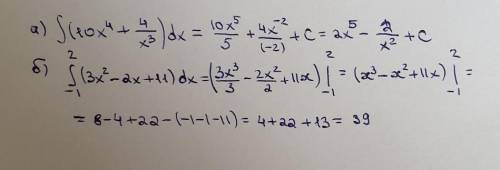 а) ∫(10x⁴ + 4/x³)dx = 10x⁵/5 + 4x⁻²/(-2) + C = 2x⁵ - 2/x² + C
б) ∫₋₁² (3x² - 2x + 11)dx = (3x³/3 - 2x²/2 + 11x)|₋₁² = (x³ - x² + 11x)|₋₁² =
= 8 - 4 + 22 - (-1 - 1 - 11) = 4 + 22 + 13 = 39